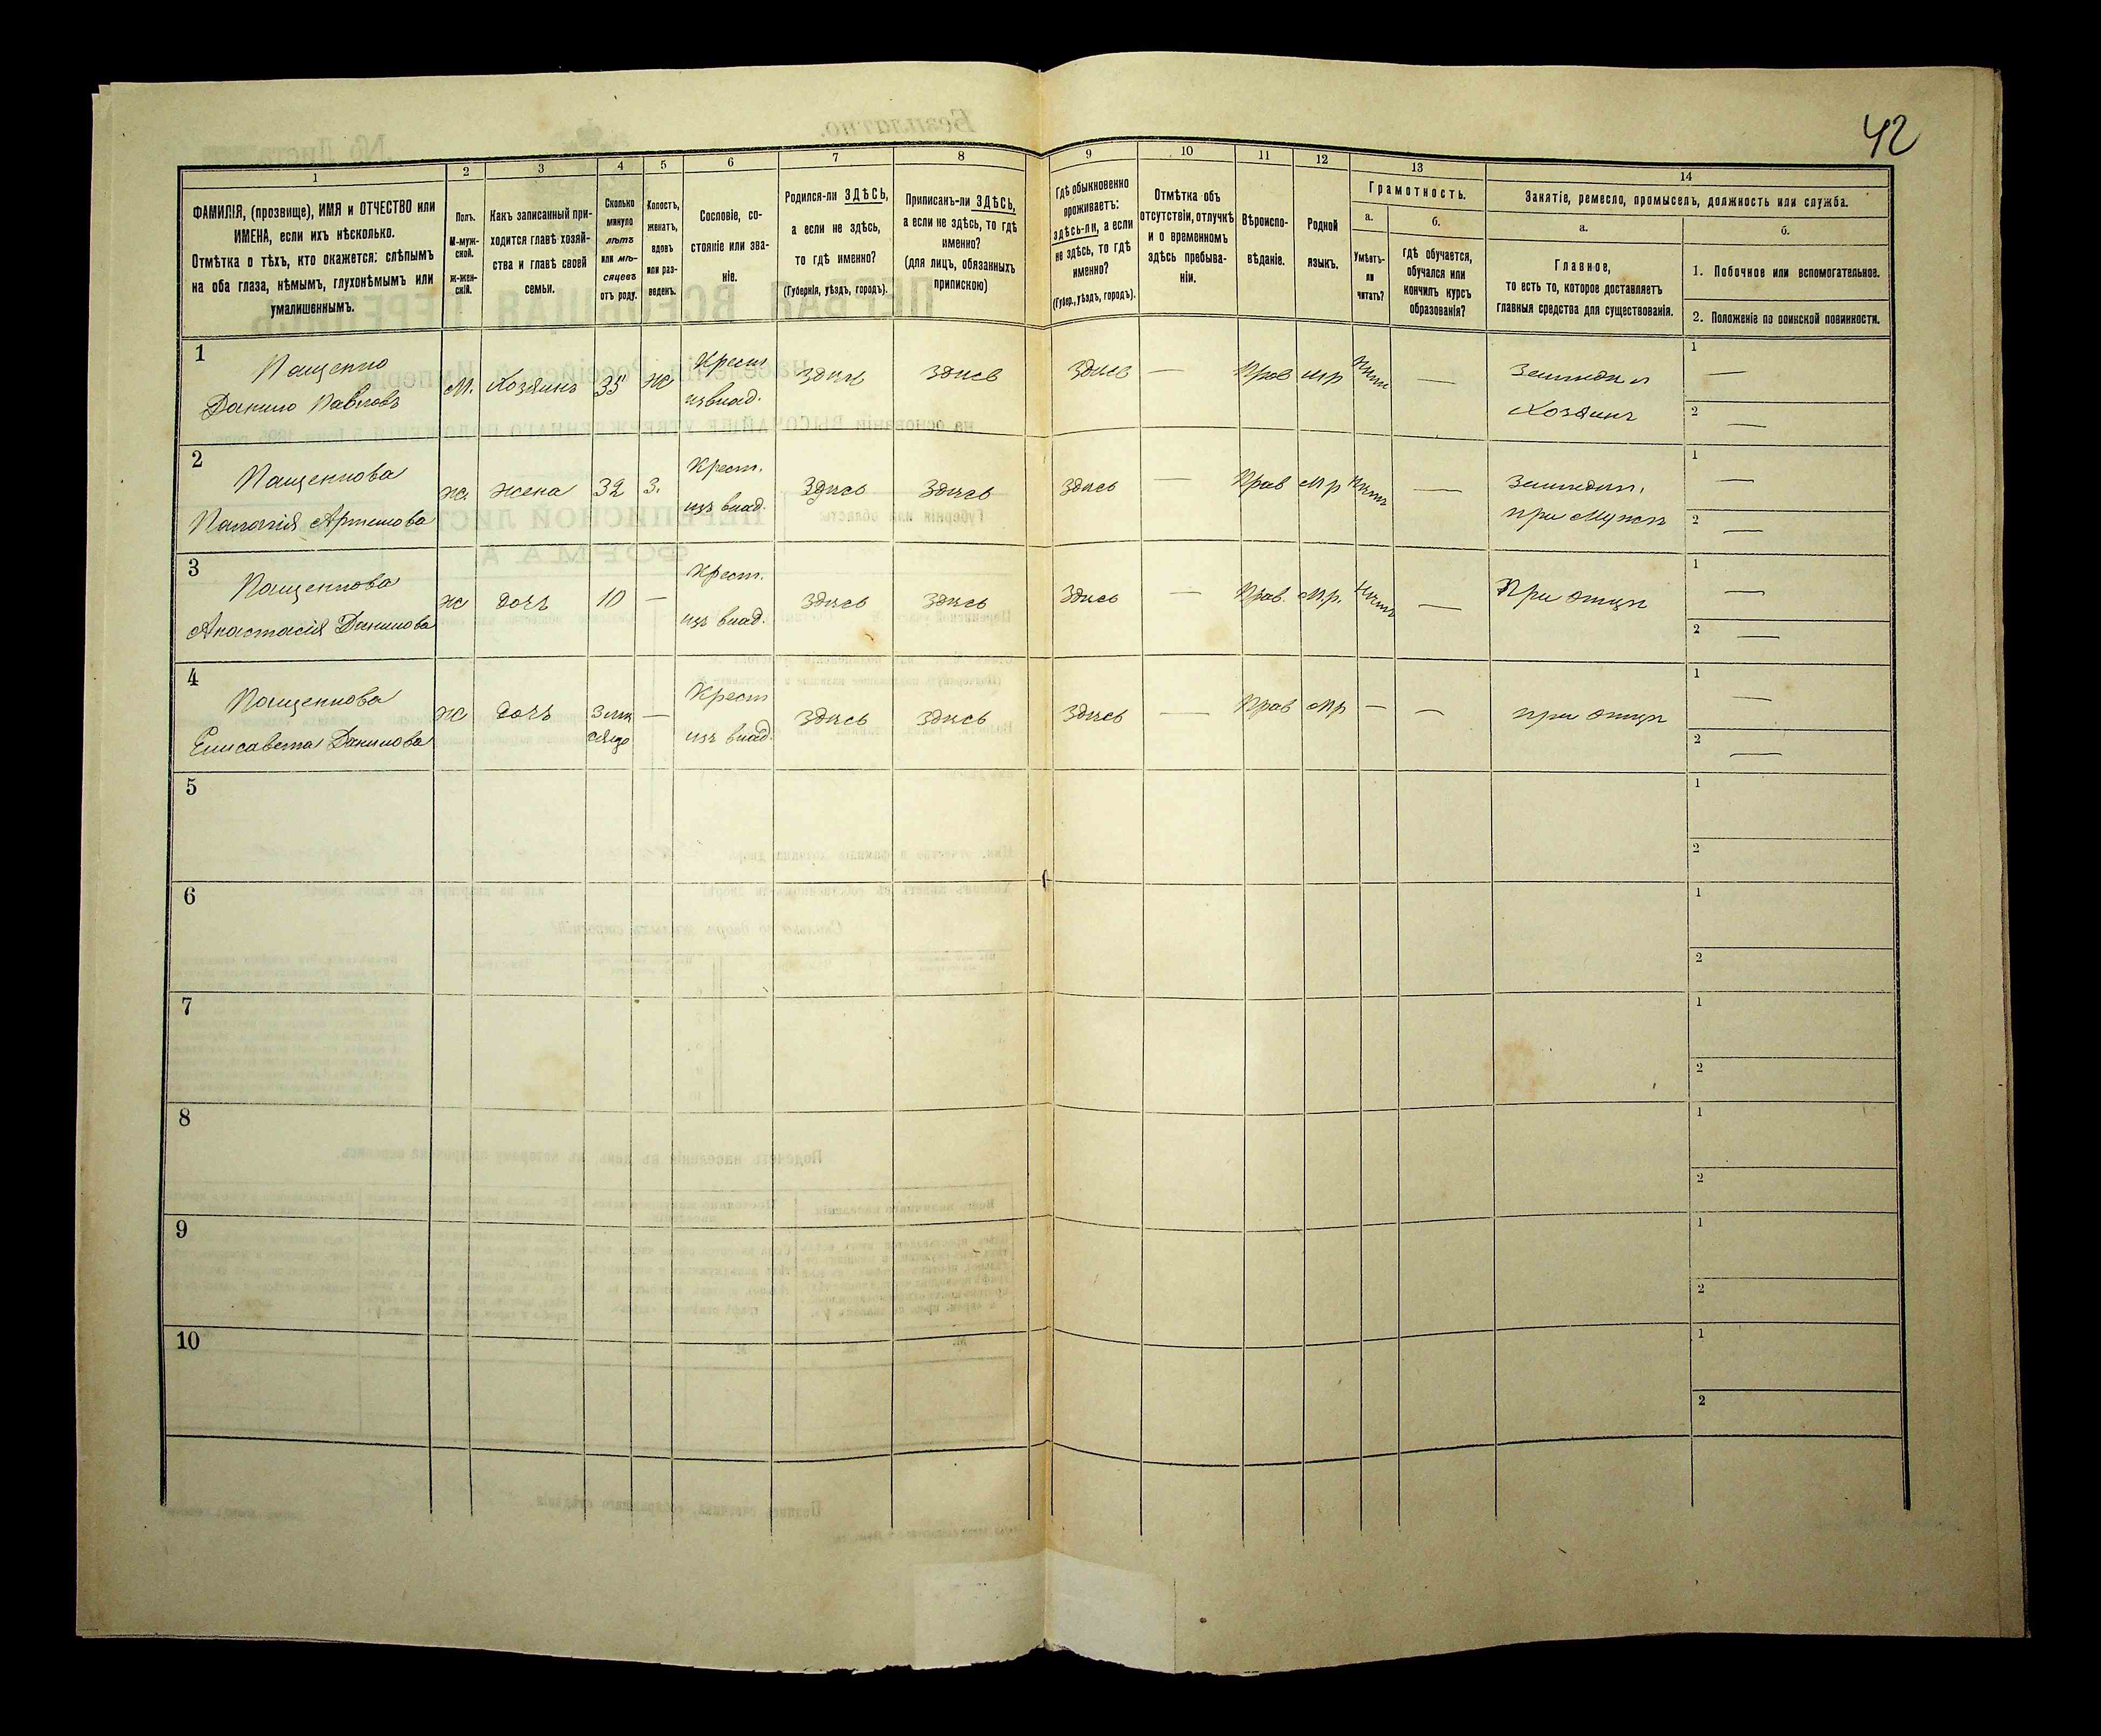 42
1 2 3 4 5 6 7 8 9 10 11 12 13 14
ФАМИЛІЯ, (прозвище), ИМЯ и ОТЧЕСТВО или
ИМЕНА, если ихъ нѣсколько.
Отмѣтка о тѣхъ, кто окажется: слѣпымъ
на оба глаза, нѣмымъ, глухонѣмымъ или
умалишеннымъ.
Полъ.
М-муж-
ской.
Ж-жен-
скій.
Какъ записанный при-
ходится главѣ хозяй-
ства и главѣ своей
семьи.
Сколько
минуло
лѣтъ
или мѣ-
сяцевъ
отъ роду.
Холостъ,
женатъ,
вдовъ
или раз-
веденъ.
Сословіе, со-
стояніе или зва-
ніе.
Родился-ли ЗДѢСЬ,
а если не здѣсь,
то гдѣ именно?
(Губернія, уѣздъ, городъ).
Приписанъ-ли ЗДѢСЬ,
а если не здѣсь, то гдѣ
именно?
(для лицъ, обязанныхъ
припискою)
Гдѣ обыкновенно
проживаетъ:
здѣсь-ли, а если
не здѣсь, то гдѣ
именно?
(Губер., уѣздъ, городъ).
Отмѣтка объ
отсутствіи, отлучкѣ
и о временномъ
здѣсь пребыва-
ніи.
Вѣроиспо-
вѣданіе.
Родной
языкъ.
Грамотность.
а.
Умѣетъ-
ли
читать?
б.
гдѣ обучается,
обучался или
кончилъ курсъ
образованія?
Занятіе, ремесло, промыселъ, должность или служба.
а.
Главное,
то есть то, которое доставляетъ
главныя средства для существованія.
б.
1. Побочное или вспомогательное.
2. Положеніе по воинской повинности.
1 Пащенко
Данило Павловъ
М. Хозяинъ 35 ж
Крест
из влад.
Здѣсь Здѣсь Здѣсь — Прав мр Нѣтъ —
Хозяинъ
1 —
2 —
2 Пащенкова
Артемова
ж. жена 32 З.
Крест.
изъ влад.
Здѣсь Здѣсь Здѣсь — Прав мр Нѣтъ —
при мужѣ
1 —
2 —
3 Пащенкова
Анастасія Данилова
ж дочь 10 —
Крест.
изъ влад.
Здѣсь Здѣсь Здѣсь — Прав. мр. Нѣтъ —
При отцѣ
1 —
2 —
4 Пащенкова
Елисавета Данилова
ж дочь 3 мѣ
сяца —
Крест
изъ влад.
Здѣсь Здѣсь Здѣсь — Прав мр — —
при отцѣ
1 —
2 —
5 1
2
6 1
2
7 1
2
8 1
2
9 1
2
10 1
2